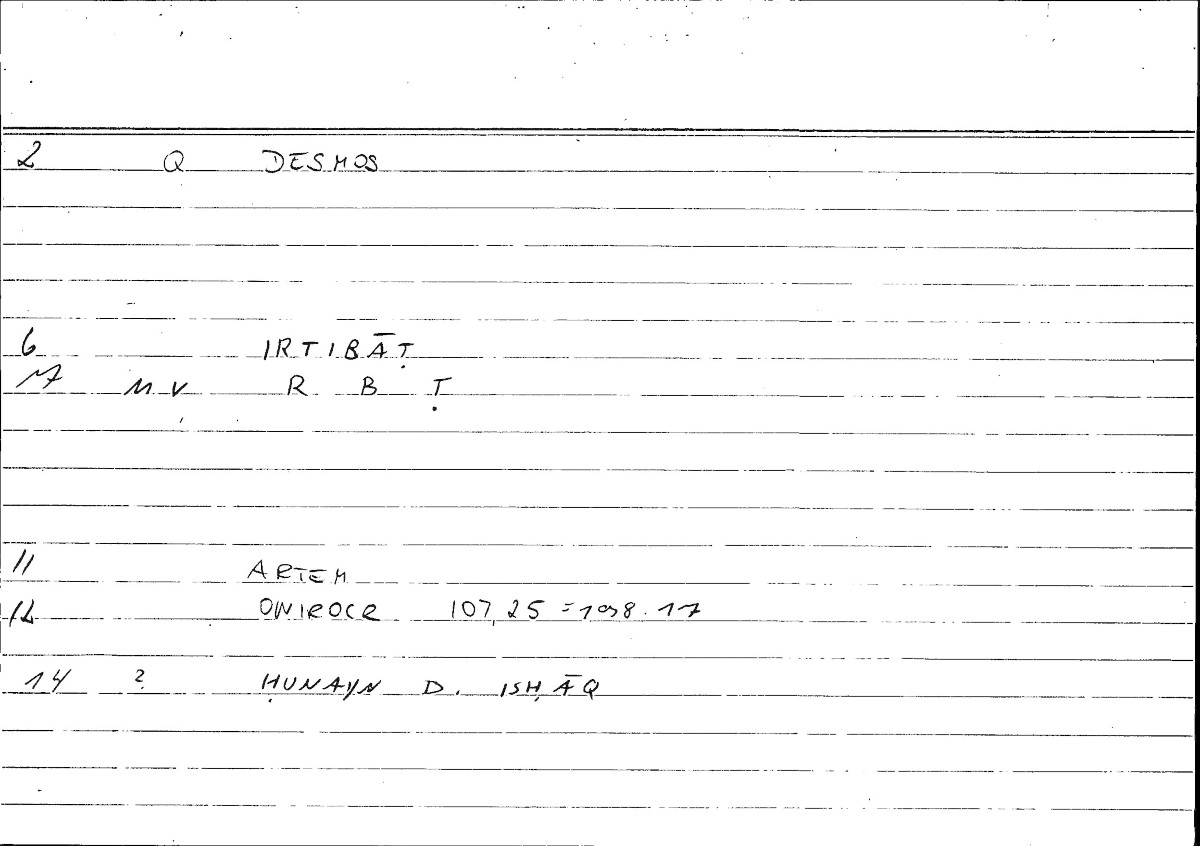 2 Q DESMOS
6 IRTIBĀṬ
17 MV R B Ṭ
11 ARTEM
12 ONIROCR 107,25 = 198.17
14 ? ḤUNAYN D. ISḤĀQ